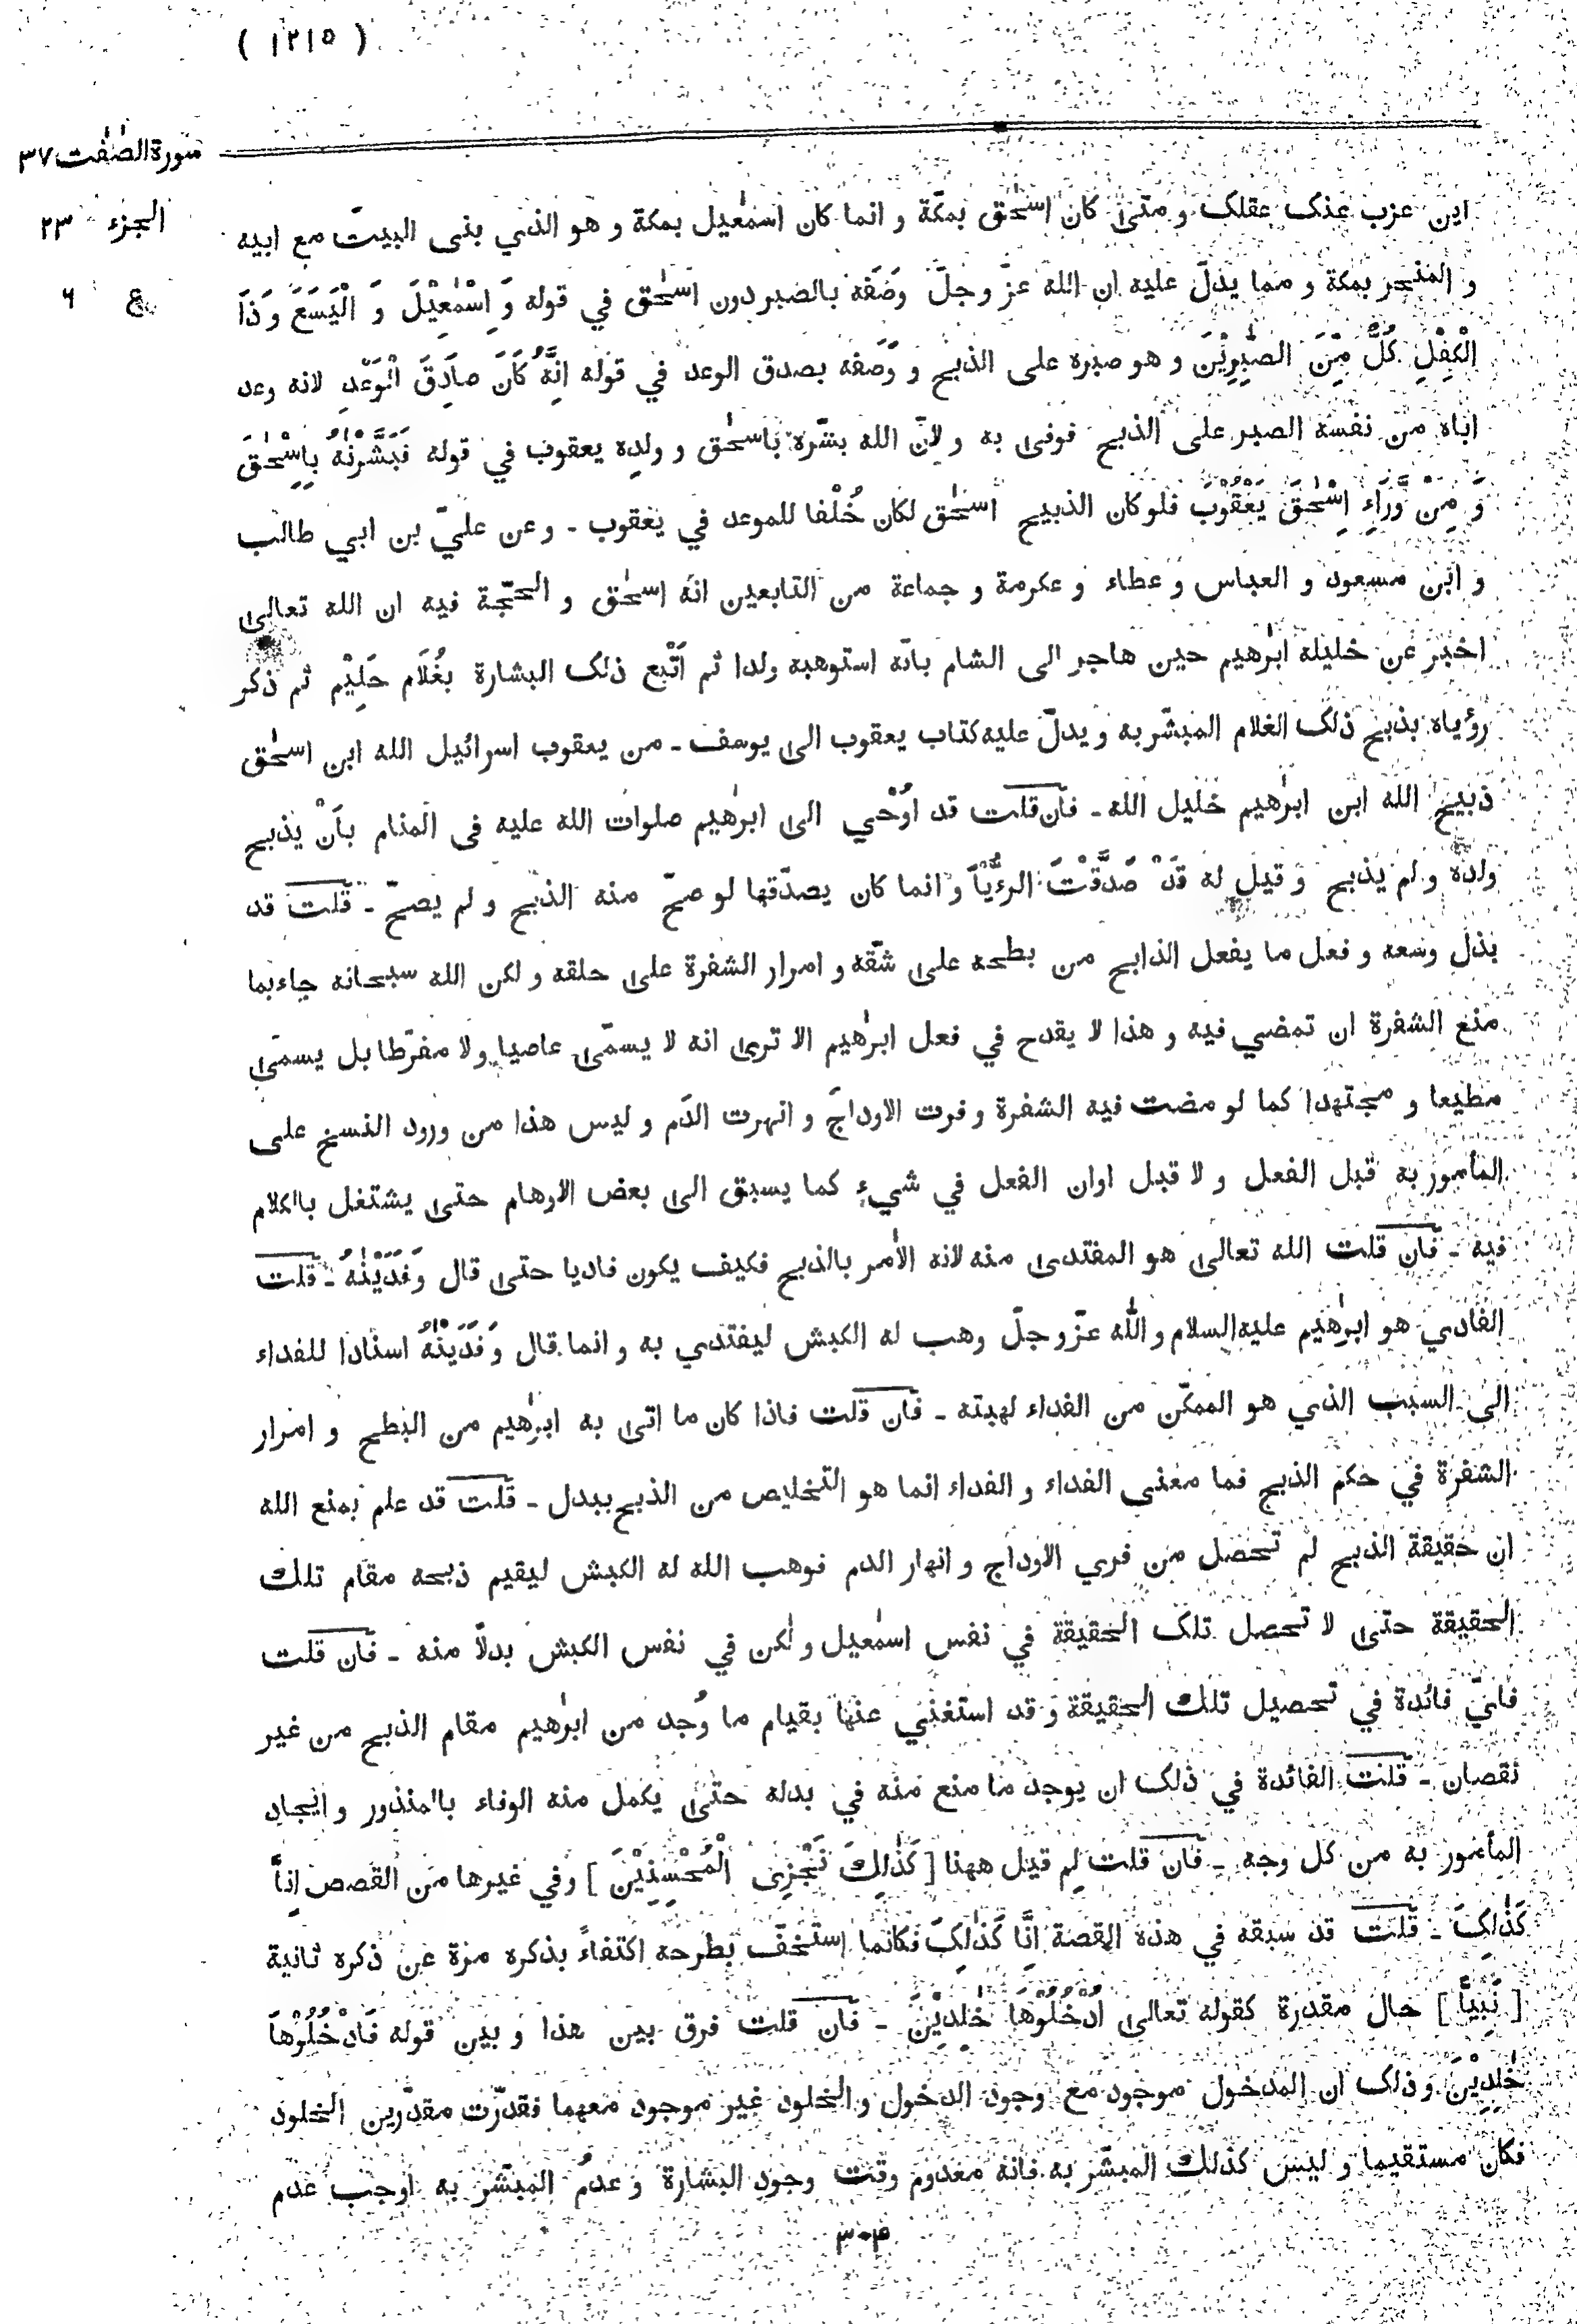 ( ١٢١٥ )
سورة الصّٰفّٰت ٣٧
الجزء ٢٣
ع ٦
اين عزب عنك عقلك و متىٰ كان اسحٰق بمكّة و انما كان اسمٰعيل بمكة و هو الذي بنى البيت مع ابيه
و المنحر بمكة و مما يدلّ عليه ان الله عزّ وجلّ وَصَفه بالصبر دون اسحٰق في قوله وَ اِسْمٰعِيْلَ وَ الْيَسَعَ وَ ذَا
الْكِفْلِ كُلٌّ مِّنَ الصّٰبِرِيْنَ و هو صبره على الذبح و وَصَفه بصدق الوعد في قوله اِنَّهُ كَانَ صَادِقَ الْوَعْدِ لانه وعد
اباه من نفسه الصبر على الذبح فوفى به و لانّ الله بشّره باسحٰق و ولده يعقوب في قوله فَبَشَّرْنٰهَا بِاِسْحٰقَ
وَ مِنْ وَّرَاءِ اِسْحٰقَ يَعْقُوْبَ فلو كان الذبيح اسحٰق لكان خُلْفا للموعد في يعقوب - و عن عليّ بن ابي طالب
و ابن مسعود و العباس و عطاء و عكرمة و جماعة من التابعين انه اسحٰق و الحجّة فيه ان الله تعالىٰ
اخبر عن خليله ابرٰهيم حين هاجر الى الشام بانه استوهبه ولدا ثم اَتْبع ذلك البشارة بِغُلَام حَلِيْم ثم ذكر
رؤياه بذبح ذلك الغلام المبشّر به و يدلّ عليه كتاب يعقوب الى يوسف - من يعقوب اسرائيل الله ابن اسحٰق
ذبيح الله ابن ابرٰهيم خليل الله - فان قلت قد اُوْحي الى ابرٰهيم صلوات الله عليه في المنام بأنْ يذبح
ولده و لم يذبح و قيل له قَدْ صَدَّقْتَ الرُّءْيَا و انما كان يصدّقها لو صحّ منه الذبح و لم يصحّ - قلت قد
بذل وسعه و فعل ما يفعل الذابح من بطحه على شقّه و امرار الشفرة على حلقه و لكن الله سبحانه جاء بما
منع الشفرة ان تمضي فيه و هذا لا يقدح في فعل ابرٰهيم الا ترى انه لا يسمّى عاصيا و لا مفرّطا بل يسمّى
مطيعا و مجتهدا كما لو مضت فيه الشفرة و فرت الاوداج و انهرت الدّم و ليس هذا من ورود النسخ على
المأمور به قبل الفعل و لا قبل اوان الفعل في شيءٍ كما يسبق الى بعض الاوهام حتى يشتغل بالكلام
فيه - فان قلت الله تعالىٰ هو المفتدى منه لانه الاٰمر بالذبح فكيف يكون فاديا حتى قال وَ فَدَيْنٰهُ - قلت
الفادي هو ابرٰهيم عليه السلام و الله عزّ و جلّ وهب له الكبش ليفتدي به و انما قال وَ فَدَيْنٰهُ اسنادا للفداء
الى السبب الذي هو الممكّن من الفداء لهبته - فان قلت فاذا كان ما اتى به ابرٰهيم من البطح و امرار
الشفرة في حكم الذبح فما معنى الفداء و الفداء انما هو التخليص من الذبح ببدل - قلت قد علم بمنع الله
ان حقيقة الذبح لم تحصل من فري الاوداج و انهار الدم فوهب الله له الكبش ليقيم ذبحه مقام تلك
الحقيقة حتى لا تحصل تلك الحقيقة في نفس اسمٰعيل و لٰكن في نفس الكبش بدلًا منه - فان قلت
فايّ فائدة في تحصيل تلك الحقيقة و قد استغني عنها بقيام ما وُجد من ابرٰهيم مقام الذبح من غير
نقصان - قلت الفائدة في ذلك ان يوجد ما منع منه في بدله حتى يكمل منه الوفاء بالمنذور و ايجاد
المأمور به من كل وجه - فان قلت لم قيل ههنا [ كَذٰلِكَ نَجْزِى الْمُحْسِنِيْنَ ] و في غيرها من القصص اِنَّا
كَذٰلِكَ - قلت قد سبقه في هذه القصة اِنَّا كَذٰلِكَ فكانما استخفّ بطرحه اكتفاءً بذكره مرّة عن ذكره ثانية
[ نَبِيًّا ] حال مقدرة كقوله تعالىٰ اُدْخُلُوْهَا خٰلِدِيْنَ - فان قلت فرق بين هذا و بين قوله فَادْخُلُوْهَا
خٰلِدِيْنَ و ذلك ان المدخول موجود مع وجود الدخول و الخلود غير موجود معهما فقدّرت مقدّرين الخلود
فكان مستقيما و ليس كذلك المبشّر به فانه معدوم وقت وجود البشارة و عدمُ المبشّر به اوجب عدم
٣٠٤